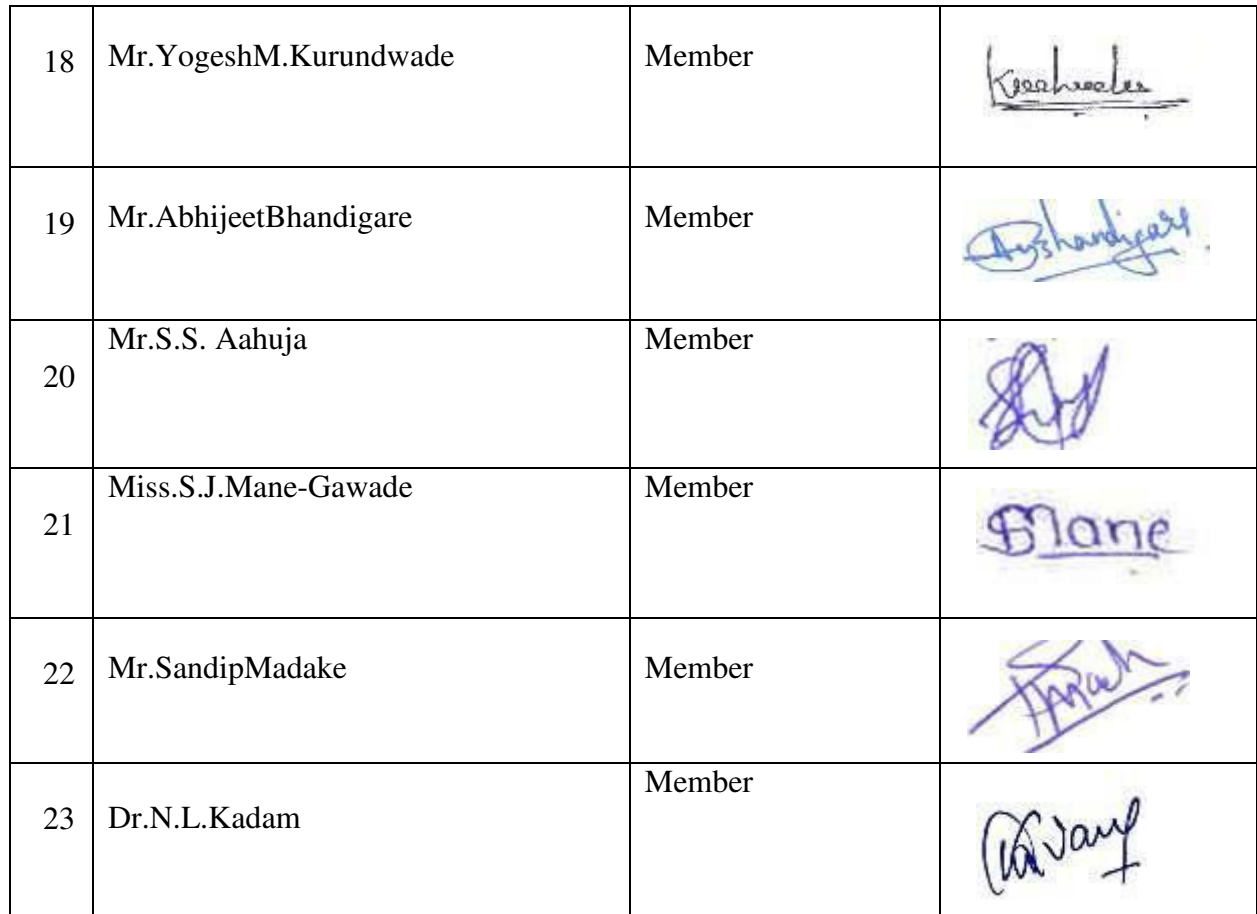 18 Mr.YogeshM.Kurundwade Member
19 Mr.AbhijeetBhandigare Member
20 Mr.S.S. Aahuja Member
21 Miss.S.J.Mane-Gawade Member SMane
22 Mr.SandipMadake Member
23 Dr.N.L.Kadam Member